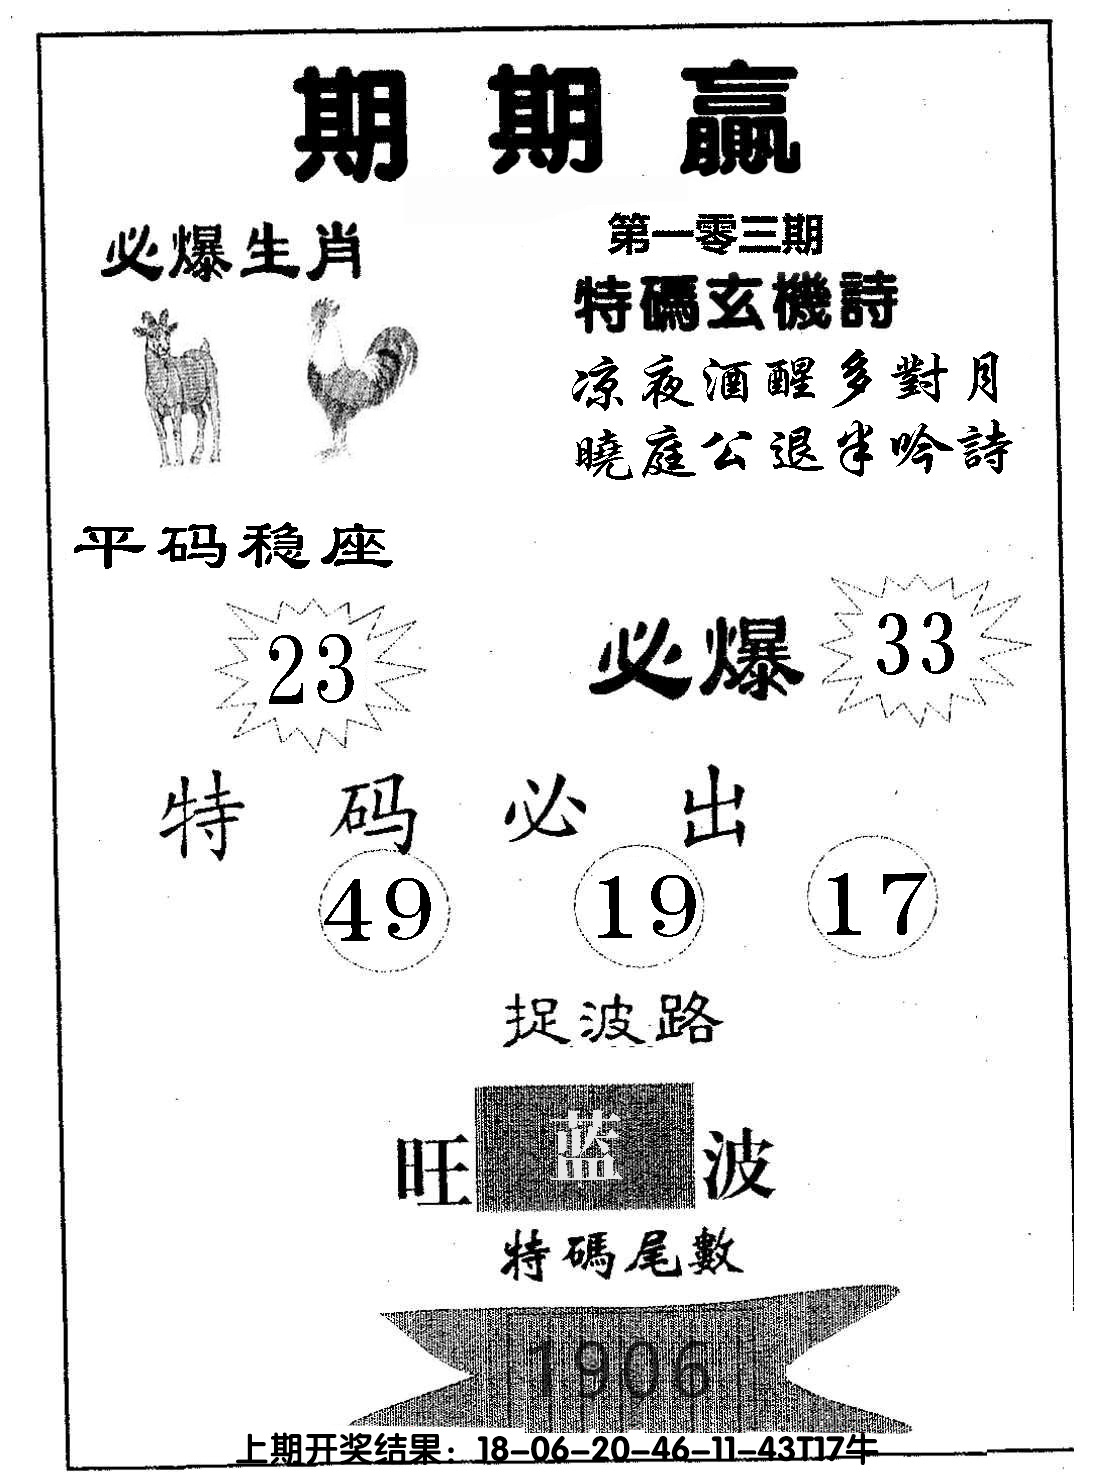 期期赢
第一零三期
必爆生肖
特碼玄機詩
凉夜酒醒多對月
曉庭公退半吟詩
平码稳座
23
必爆 33
特码必出
49 19 17
捉波路
旺 蓝 波
特碼尾數
1906
上期开奖结果：18-06-20-46-11-43T17牛